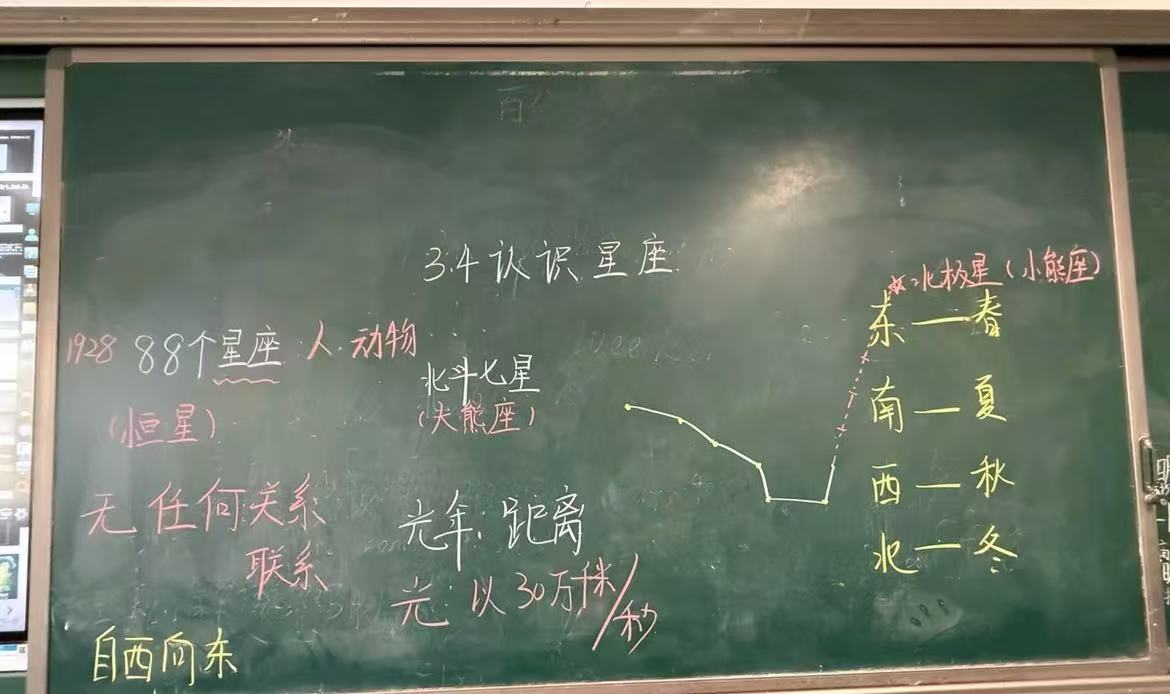 3.4认识星座
北极星(小熊座)
1928 88个星座:人.动物
(恒星)
北斗七星
(大熊座)
无任何关系
联系
光年:距离
光:以30万千米/秒
自西向东
东—春
南—夏
西—秋
北—冬